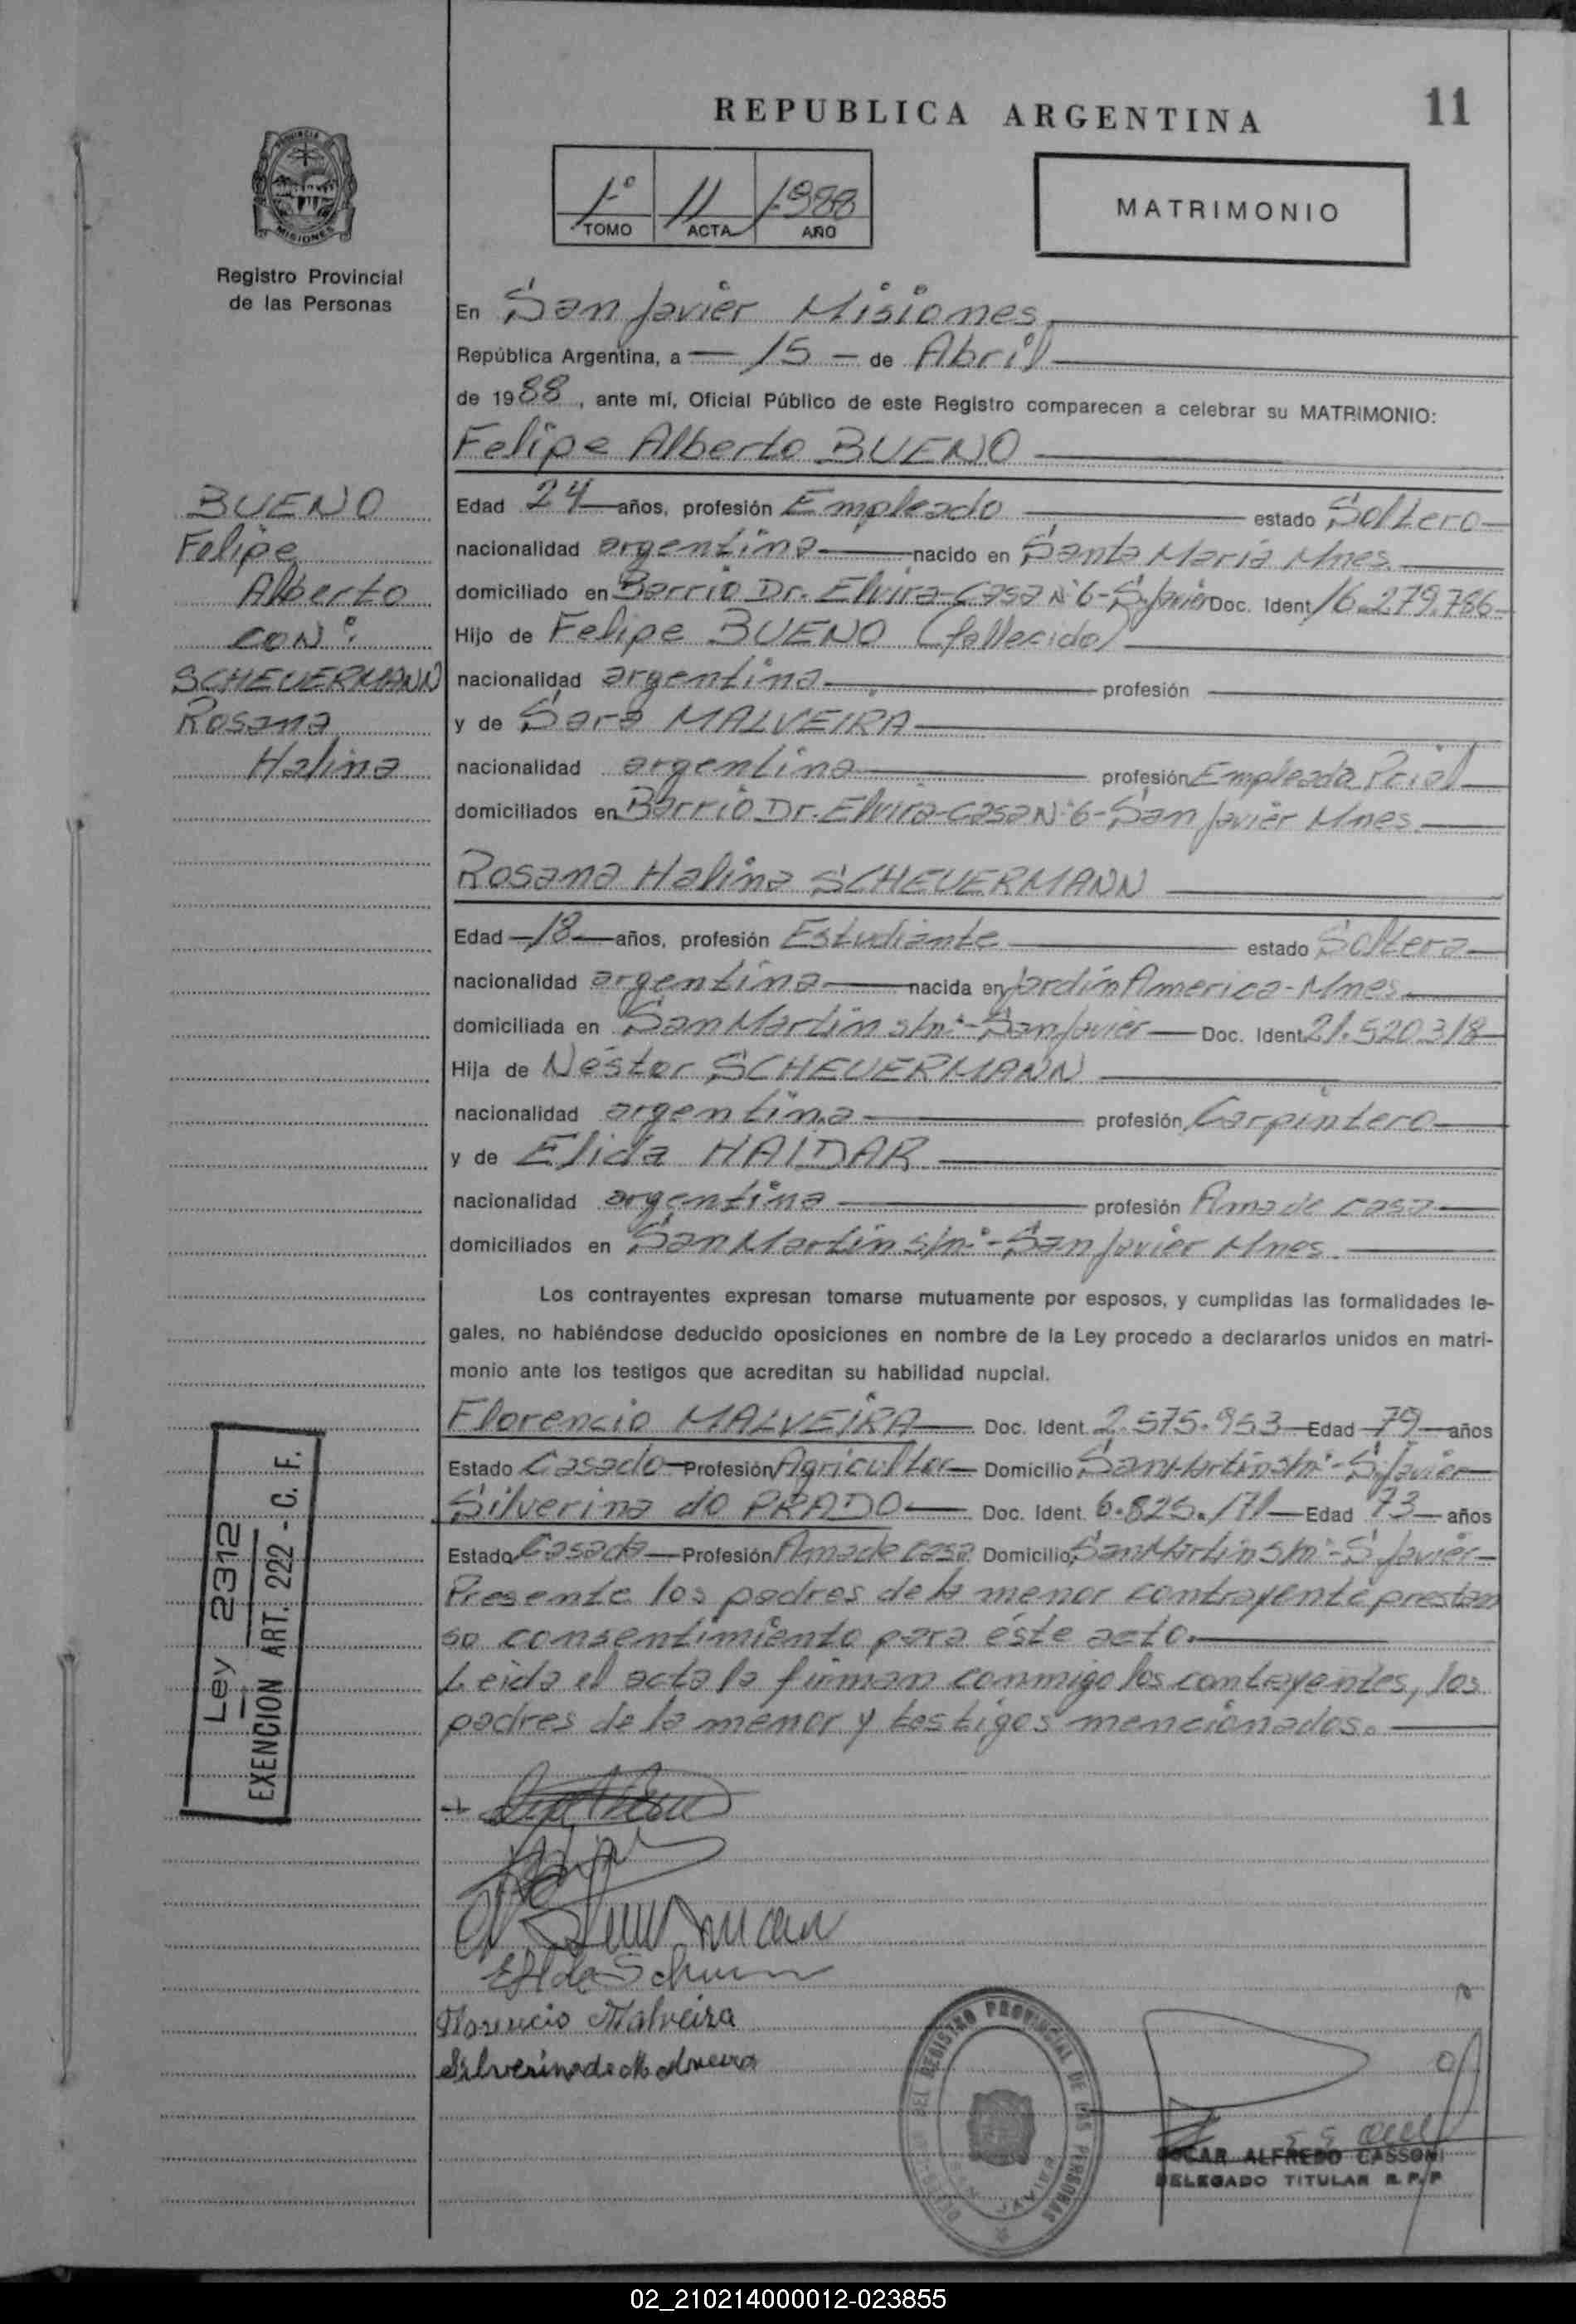 REPUBLICA ARGENTINA
11
PROVINCIA
MISIONES
Registro Provincial
de las Personas
1º 11 1988
TOMO ACTA AÑO
MATRIMONIO
En San Javier Misiones
República Argentina, a 15 de Abril
de 1988, ante mí, Oficial Público de este Registro comparecen a celebrar su MATRIMONIO:
Felipe Alberto BUENO
BUENO
Felipe
Alberto
CON:
SCHEUERMANN
Rosana
Halina
Edad 24 años, profesión Empleado estado Soltero
nacionalidad argentina nacido en Santa María Mnes.
domiciliado en Barrio Dr. Elvira-Casa Nº6-S.Javier Doc. Ident 16.279.786
Hijo de Felipe BUENO (fallecido)
nacionalidad argentina profesión
y de Sara MALVEIRA
nacionalidad argentina profesión Empleada Pcial
domiciliados en Barrio Dr. Elvira-Casa Nº6-San Javier Mnes.
Rosana Halina SCHEUERMANN
Edad 18 años, profesión Estudiante estado Soltera
nacionalidad argentina nacida en Jardín America-Mnes.
domiciliada en San Martín s/nº-San Javier Doc. Ident 21.520.318
Hija de Néstor SCHEUERMANN
nacionalidad argentina profesión Carpintero
y de Elida HAIDAR
nacionalidad argentina profesión Ama de casa
domiciliados en San Martín s/nº-San Javier Mnes.
Los contrayentes expresan tomarse mutuamente por esposos, y cumplidas las formalidades le-
gales, no habiéndose deducido oposiciones en nombre de la Ley procedo a declararlos unidos en matri-
monio ante los testigos que acreditan su habilidad nupcial.
Florencio MALVEIRA Doc. Ident. 2.575.953 Edad 79 años
Estado Casado Profesión Agricultor Domicilio San Martín s/nº-S.Javier
Silverina do PRADO Doc. Ident. 6.825.171 Edad 73 años
Estado Casada Profesión Ama de casa Domicilio San Martín s/nº-S.Javier
Presente los padres de la menor contrayente prestan
so consentimiento para éste acto.
Leída el acta la firman conmigo los contrayentes, los
padres de la menor y testigos mencionados.
Ley 2312
EXENCION ART. 222 - C. F.
Elida
Florencio Malveira
Silverina de
DEL REGISTRO PROVINCIAL DE LAS PERSONAS
JAVIER
OSCAR ALFREDO CASSONI
DELEGADO TITULAR R. P. P
02_210214000012-023855